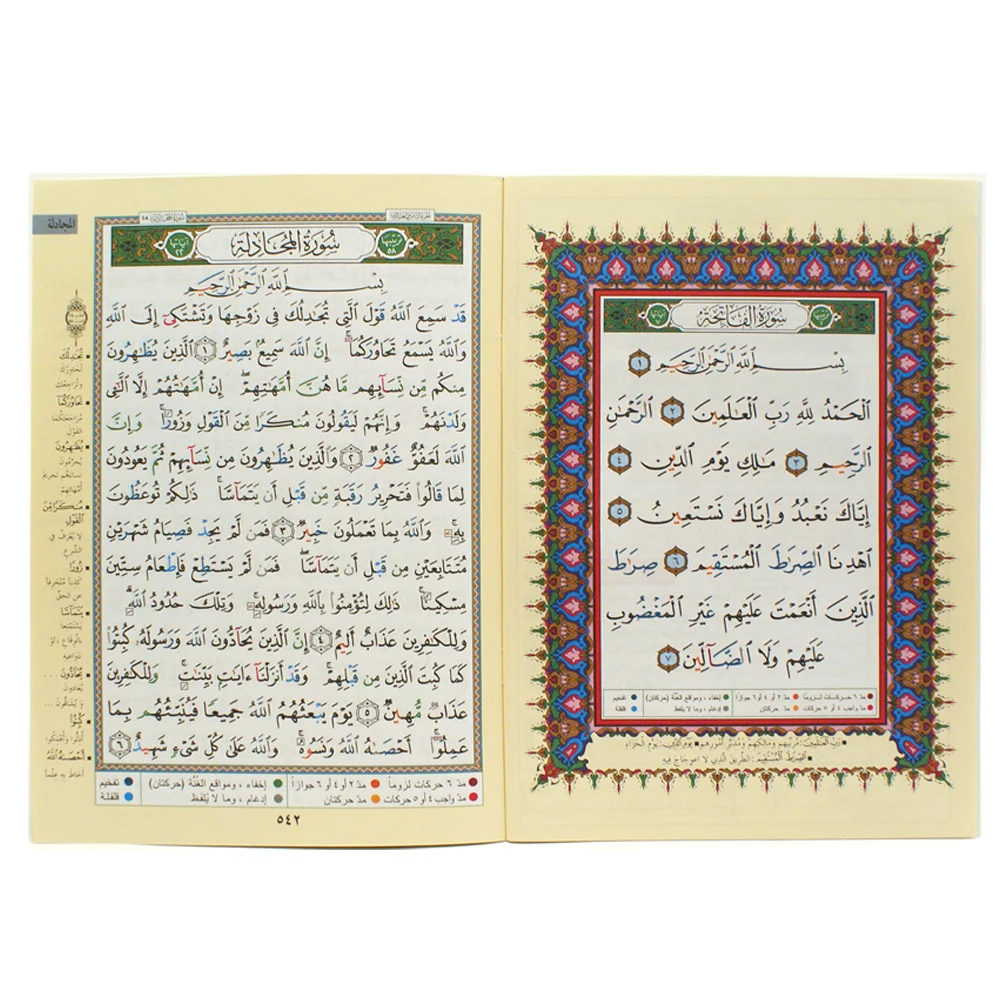 سُورَةُ الْفَاتِحَةِ
بِسْمِ ٱللَّهِ ٱلرَّحْمَٰنِ ٱلرَّحِيمِ ١
ٱلْحَمْدُ لِلَّهِ رَبِّ ٱلْعَٰلَمِينَ ٢ ٱلرَّحْمَٰنِ
ٱلرَّحِيمِ ٣ مَٰلِكِ يَوْمِ ٱلدِّينِ ٤
إِيَّاكَ نَعْبُدُ وَإِيَّاكَ نَسْتَعِينُ ٥
ٱهْدِنَا ٱلصِّرَٰطَ ٱلْمُسْتَقِيمَ ٦ صِرَٰطَ
ٱلَّذِينَ أَنْعَمْتَ عَلَيْهِمْ غَيْرِ ٱلْمَغْضُوبِ
عَلَيْهِمْ وَلَا ٱلضَّآلِّينَ ٧
مدّ ٦ حركات لزوماً مدّ ٢ أو ٤ أو ٦ جوازاً إخفاء، ومواقع الغُنَّة (حركتان) تفخيم
مدّ واجب ٤ أو ٥ حركات مدّ حركتان إدغام، وما لا يُلفَظ قلقلة
المجادلة
ترتيبها ٥٨ سُورَةُ المُجَادلَة آياتها ٢٢
بِسْمِ ٱللَّهِ ٱلرَّحْمَٰنِ ٱلرَّحِيمِ
قَدْ سَمِعَ ٱللَّهُ قَوْلَ ٱلَّتِى تُجَٰدِلُكَ فِى زَوْجِهَا وَتَشْتَكِىٓ إِلَى ٱللَّهِ
وَٱللَّهُ يَسْمَعُ تَحَاوُرَكُمَآ إِنَّ ٱللَّهَ سَمِيعٌۢ بَصِيرٌ ١ ٱلَّذِينَ يُظَٰهِرُونَ
مِنكُم مِّن نِّسَآئِهِم مَّا هُنَّ أُمَّهَٰتِهِمْ إِنْ أُمَّهَٰتُهُمْ إِلَّا ٱلَّٰٓـِٔى
وَلَدْنَهُمْ وَإِنَّهُمْ لَيَقُولُونَ مُنكَرًا مِّنَ ٱلْقَوْلِ وَزُورًا وَإِنَّ
ٱللَّهَ لَعَفُوٌّ غَفُورٌ ٢ وَٱلَّذِينَ يُظَٰهِرُونَ مِن نِّسَآئِهِمْ ثُمَّ يَعُودُونَ
لِمَا قَالُوا۟ فَتَحْرِيرُ رَقَبَةٍ مِّن قَبْلِ أَن يَتَمَآسَّا ذَٰلِكُمْ تُوعَظُونَ
بِهِۦ وَٱللَّهُ بِمَا تَعْمَلُونَ خَبِيرٌ ٣ فَمَن لَّمْ يَجِدْ فَصِيَامُ شَهْرَيْنِ
مُتَتَابِعَيْنِ مِن قَبْلِ أَن يَتَمَآسَّا فَمَن لَّمْ يَسْتَطِعْ فَإِطْعَامُ سِتِّينَ
مِسْكِينًا ذَٰلِكَ لِتُؤْمِنُوا۟ بِٱللَّهِ وَرَسُولِهِۦ وَتِلْكَ حُدُودُ ٱللَّهِ
وَلِلْكَٰفِرِينَ عَذَابٌ أَلِيمٌ ٤ إِنَّ ٱلَّذِينَ يُحَآدُّونَ ٱللَّهَ وَرَسُولَهُۥ كُبِتُوا۟
كَمَا كُبِتَ ٱلَّذِينَ مِن قَبْلِهِمْ وَقَدْ أَنزَلْنَآ ءَايَٰتٍۭ بَيِّنَٰتٍ وَلِلْكَٰفِرِينَ
عَذَابٌ مُّهِينٌ ٥ يَوْمَ يَبْعَثُهُمُ ٱللَّهُ جَمِيعًا فَيُنَبِّئُهُم بِمَا
عَمِلُوٓا۟ أَحْصَىٰهُ ٱللَّهُ وَنَسُوهُ وَٱللَّهُ عَلَىٰ كُلِّ شَىْءٍ شَهِيدٌ ٦
تُجَٰدِلُكَ
تَحَاوُرَكُمَا
يُظَٰهِرُونَ
مُنكَرًا مِّنَ
ٱلْقَوْلِ
زُورًا
يَتَمَآسَّا
يُحَآدُّونَ
كُبِتُوا۟
أَحْصَىٰهُ ٱللَّهُ
مدّ ٦ حركات لزوماً مدّ ٢ أو ٤ أو ٦ جوازاً إخفاء، ومواقع الغُنَّة (حركتان) تفخيم
مدّ واجب ٤ أو ٥ حركات مدّ حركتان إدغام، وما لا يُلفَظ قلقلة
٥٤٢